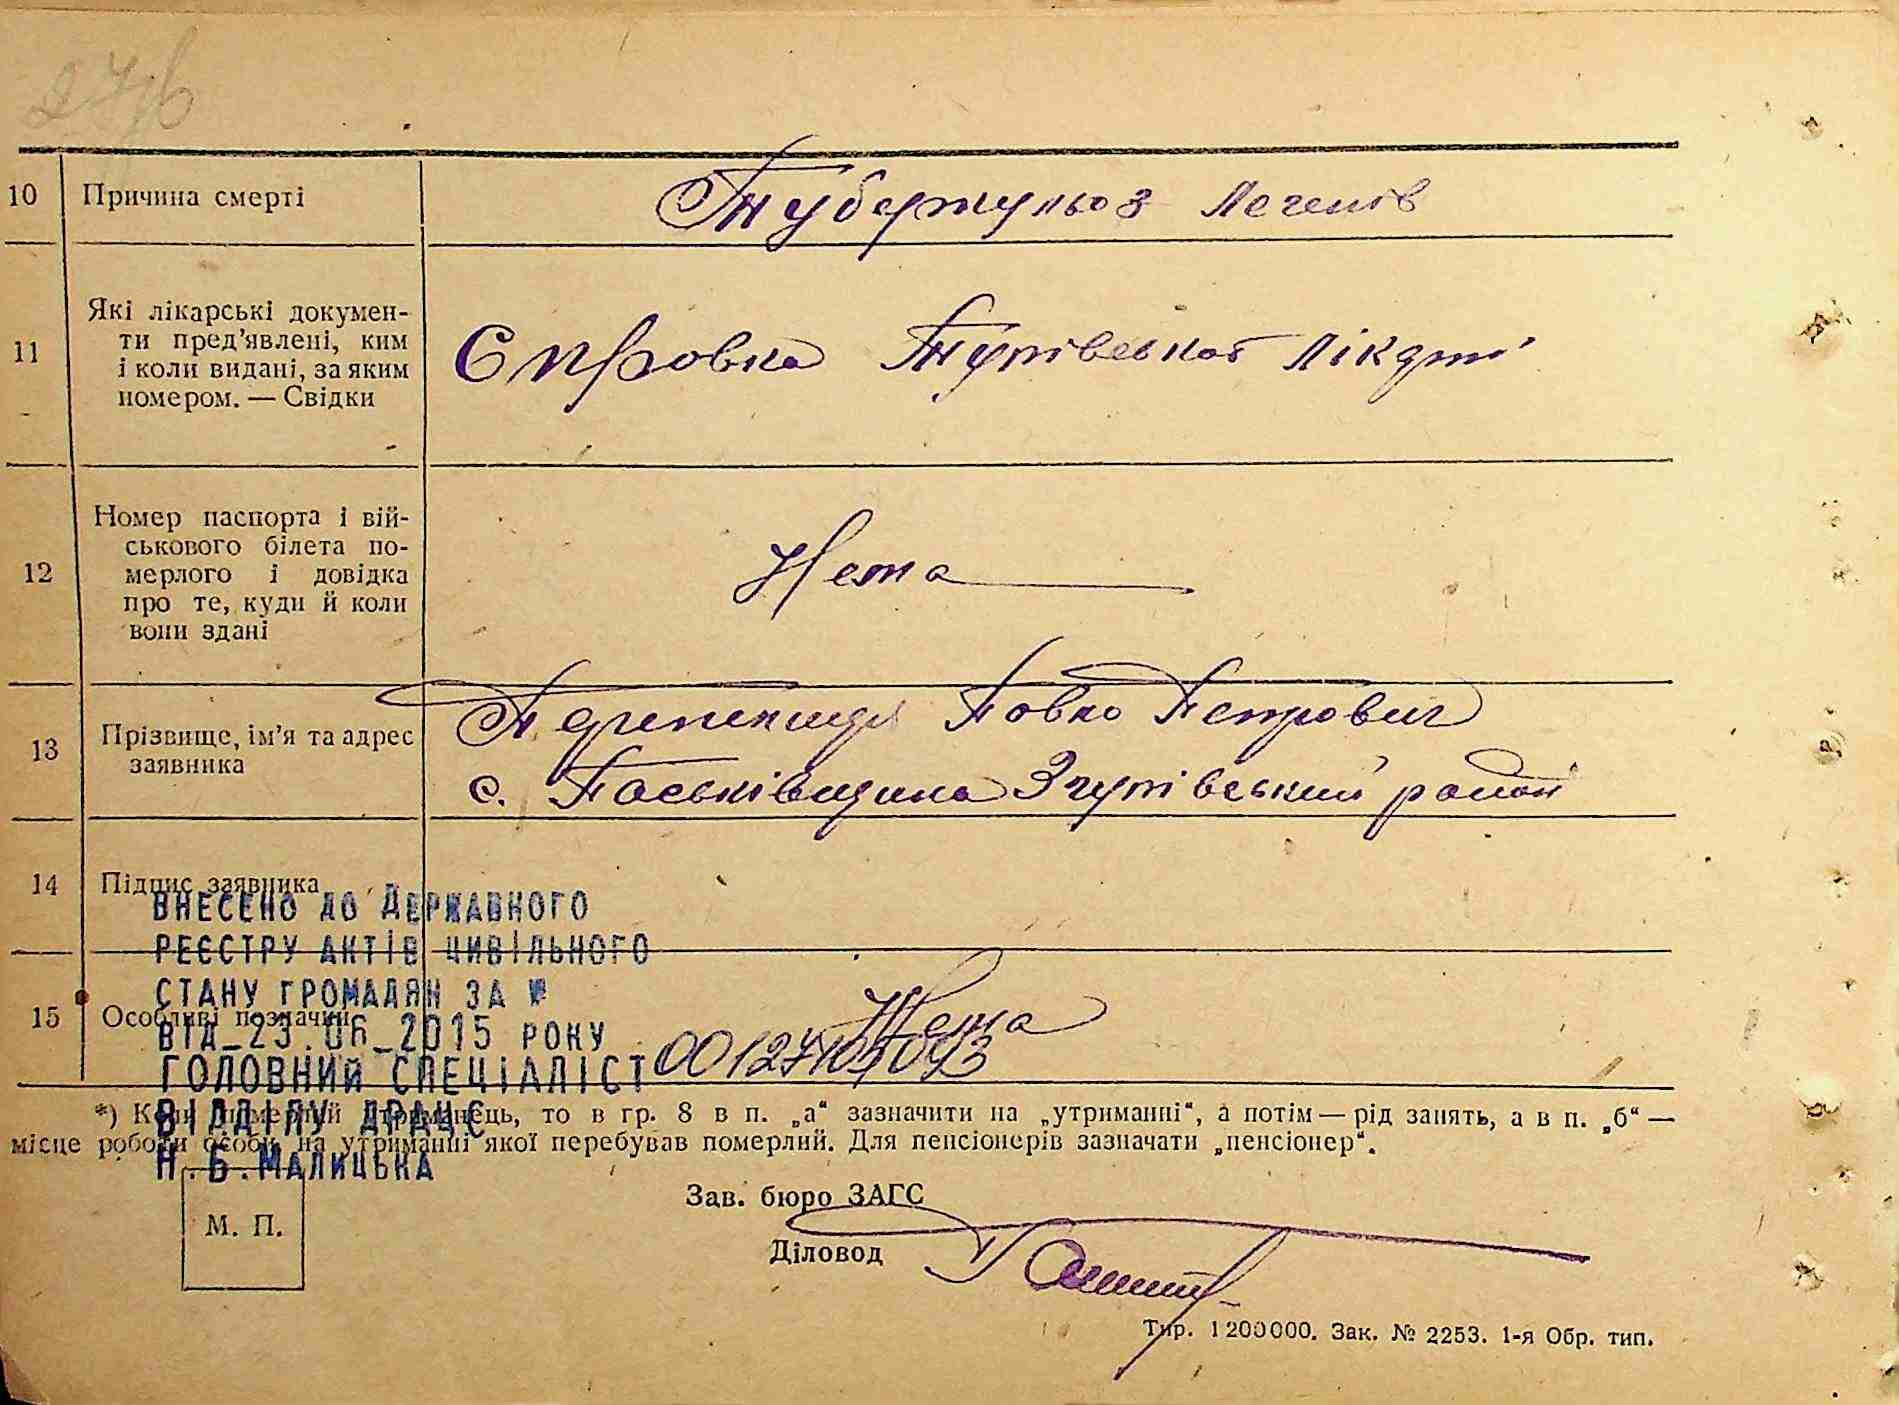 276
10 Причина смерті Туберкульоз легенів
11 Які лікарські докумен-
ти пред'явлені, ким
і коли видані, за яким
номером. — Свідки
Справка лікарні
12 Номер паспорта і вій-
ськового білета по-
мерлого і довідка
про те, куди й коли
вони здані
Нема
13 Прізвище, ім'я та адрес
заявника
Павло Петрович
с. Паськівщина Згурівський район
14 Підпис заявника
ВНЕСЕНО ДО ДЕРЖАВНОГО
РЕЄСТРУ АКТІВ ЦИВІЛЬНОГО
СТАНУ ГРОМАДЯН ЗА №
15 Особливі позначки Нема
ВІД_23.06_2015 РОКУ
ГОЛОВНИЙ СПЕЦІАЛІСТ
ВІДДІЛУ ДРАЦС
Н.Б.МАЛИЦЬКА
*) Коли померлий утриманець, то в гр. 8 в п. „а“ зазначити на „утриманні“, а потім — рід занять, а в п. „б“ —
місце роботи особи, на утриманні якої перебував померлий. Для пенсіонерів зазначати „пенсіонер“.
М. П.
Зав. бюро ЗАГС
Діловод
Тир. 1200000. Зак. № 2253. 1-я Обр. тип.